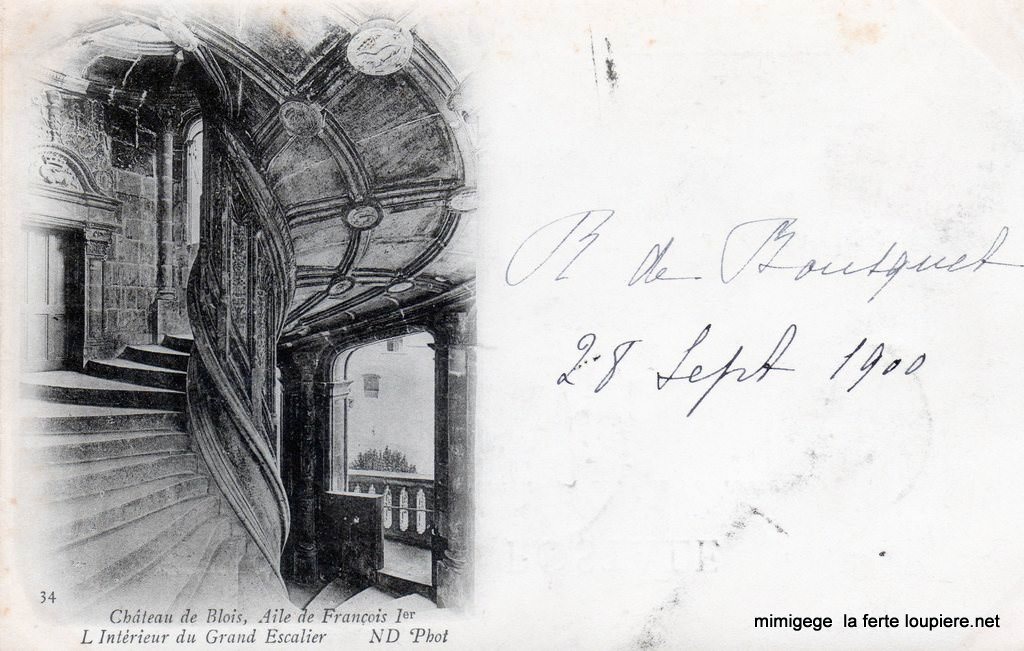 R de Bousquet
28 Sept 1900
34
Château de Blois, Aile de François Ier
L Intérieur du Grand Escalier ND Phot
mimigege la ferte loupiere.net